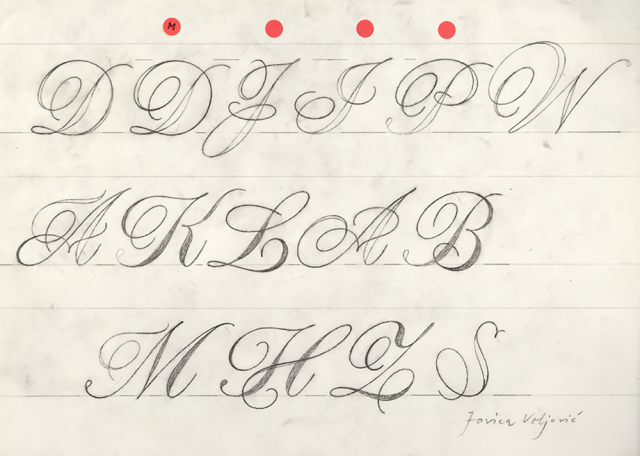 M
D D J I P W
A K L A B
M H Z S
Jovica Veljović